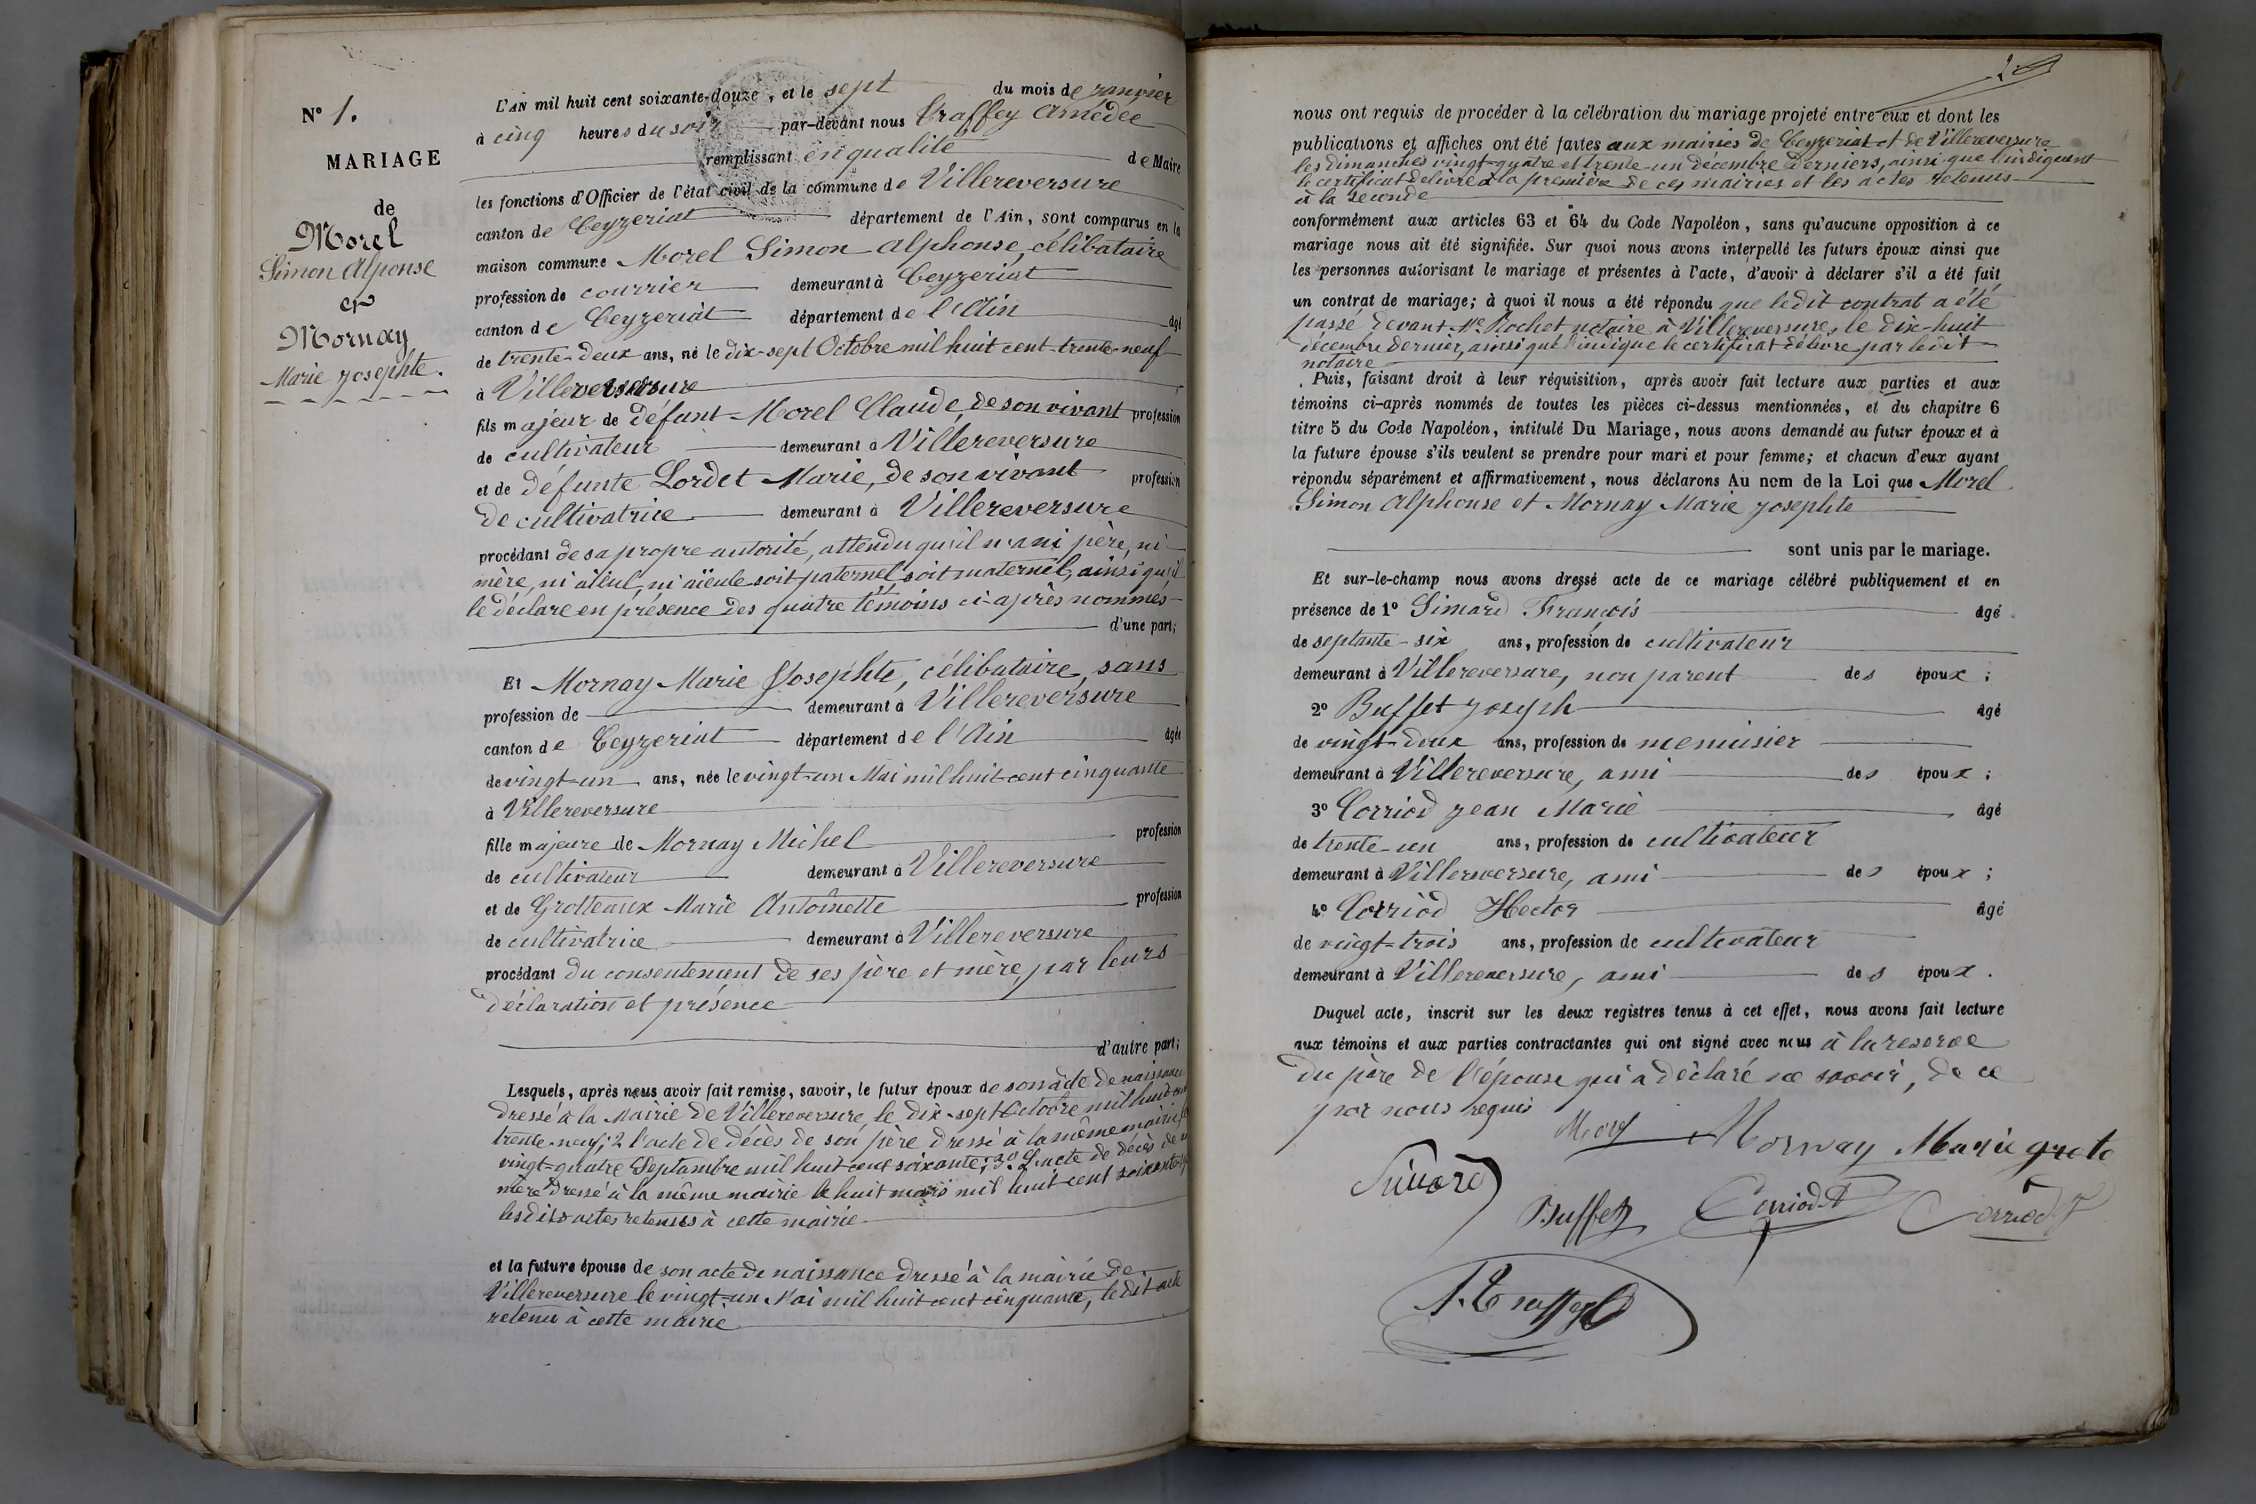 N° 1.
MARIAGE
de
Morel
Simon Alponse
et
Mornay
Marie Josephte.
L'AN mil huit cent soixante-douze, et le sept du mois de Janvier
à cinq heures du soir par-devant nous Traffey Amédée
remplissant en qualité de Maire
les fonctions d'Officier de l'état civil de la commune de Villereversure
canton de Ceyzeriat département de l'Ain, sont comparus en la
maison commune Morel Simon Alphonse, célibataire
profession de courrier demeurant à Ceyzeriat
canton de Ceyzeriat département de l'Ain âgé
de trente-deux ans, né le dix-sept Octobre mil huit cent trente-neuf
à Villereversure
fils majeur de défunt Morel Claude, de son vivant profession
de cultivateur demeurant à Villereversure
et de défunte Lordet Marie, de son vivant profession
de cultivatrice demeurant à Villereversure
procédant de sa propre autorité, attendu qu'il n'a ni père, ni
mère, ni aïeul, ni aïeule soit paternel, soit maternel, ainsi qu'il
le déclare en présence des quatre témoins ci-après nommés
d'une part;
Et Mornay Marie Josephte, célibataire, sans
profession de demeurant à Villereversure
canton de Ceyzeriat département de l'Ain âgée
de vingt-un ans, née le vingt-un Mai mil huit cent cinquante
à Villereversure
fille majeure de Mornay Michel profession
de cultivateur demeurant à Villereversure
et de Grotteaux Marie Antoinette profession
de cultivatrice demeurant à Villereversure
procédant du consentement de ses père et mère, par leurs
déclaration et présence
d'autre part;
Lesquels, après nous avoir fait remise, savoir, le futur époux de son acte de naissance
dressé à la Mairie de Villereversure, le dix-sept Octobre mil huit cent
trente-neuf; 2 l'acte de décès de son père dressé à la même mairie
vingt-quatre Septembre mil huit cent soixante; 3° L'acte de décès de
mère dressé à la même mairie le huit mars mil huit cent soixante
lesdits actes retenus à cette mairie
et la future épouse de son acte de naissance dressé à la mairie de
Villereversure le vingt-un Mai mil huit cent cinquante, ledit acte
retenu à cette mairie
nous ont requis de procéder à la célébration du mariage projeté entre eux et dont les
publications et affiches ont été faites aux mairies de Ceyzeriat et de Villereversure
les dimanches vingt-quatre et trente-un décembre derniers, ainsi que l'indiquent
le certificat délivré à la première de ces mairies et les actes retenus
à la seconde
conformément aux articles 63 et 64 du Code Napoléon, sans qu'aucune opposition à ce
mariage nous ait été signifiée. Sur quoi nous avons interpellé les futurs époux ainsi que
les personnes autorisant le mariage et présentes à l'acte, d'avoir à déclarer s'il a été fait
un contrat de mariage; à quoi il nous a été répondu que ledit contrat a été
passé devant Me Rochet notaire à Villereversure, le dix-huit
décembre dernier, ainsi que l'indique le certificat délivré par ledit
notaire
Puis, faisant droit à leur réquisition, après avoir fait lecture aux parties et aux
témoins ci-après nommés de toutes les pièces ci-dessus mentionnées, et du chapitre 6
titre 5 du Code Napoléon, intitulé Du Mariage, nous avons demandé au futur époux et à
la future épouse s'ils veulent se prendre pour mari et pour femme; et chacun d'eux ayant
répondu séparément et affirmativement, nous déclarons Au nom de la Loi que Morel
Simon Alphonse et Mornay Marie Josephte
sont unis par le mariage.
Et sur-le-champ nous avons dressé acte de ce mariage célébré publiquement et en
présence de 1° Simard François âgé
de septante-six ans, profession de cultivateur
demeurant à Villereversure, non parent des époux;
2° Buffet Joseph âgé
de vingt-deux ans, profession de menuisier
demeurant à Villereversure, ami des époux;
3° Corriod Jean Marie âgé
de trente-un ans, profession de cultivateur
demeurant à Villereversure, ami des époux;
4° Corriod Hector âgé
de vingt-trois ans, profession de cultivateur
demeurant à Villereversure, ami des époux.
Duquel acte, inscrit sur les deux registres tenus à cet effet, nous avons fait lecture
aux témoins et aux parties contractantes qui ont signé avec nous à la reserve
du père de l'épouse qui a déclaré ne savoir, de ce
par nous requis
Morel Mornay Marie
Simard
Buffet Corriod Corriod